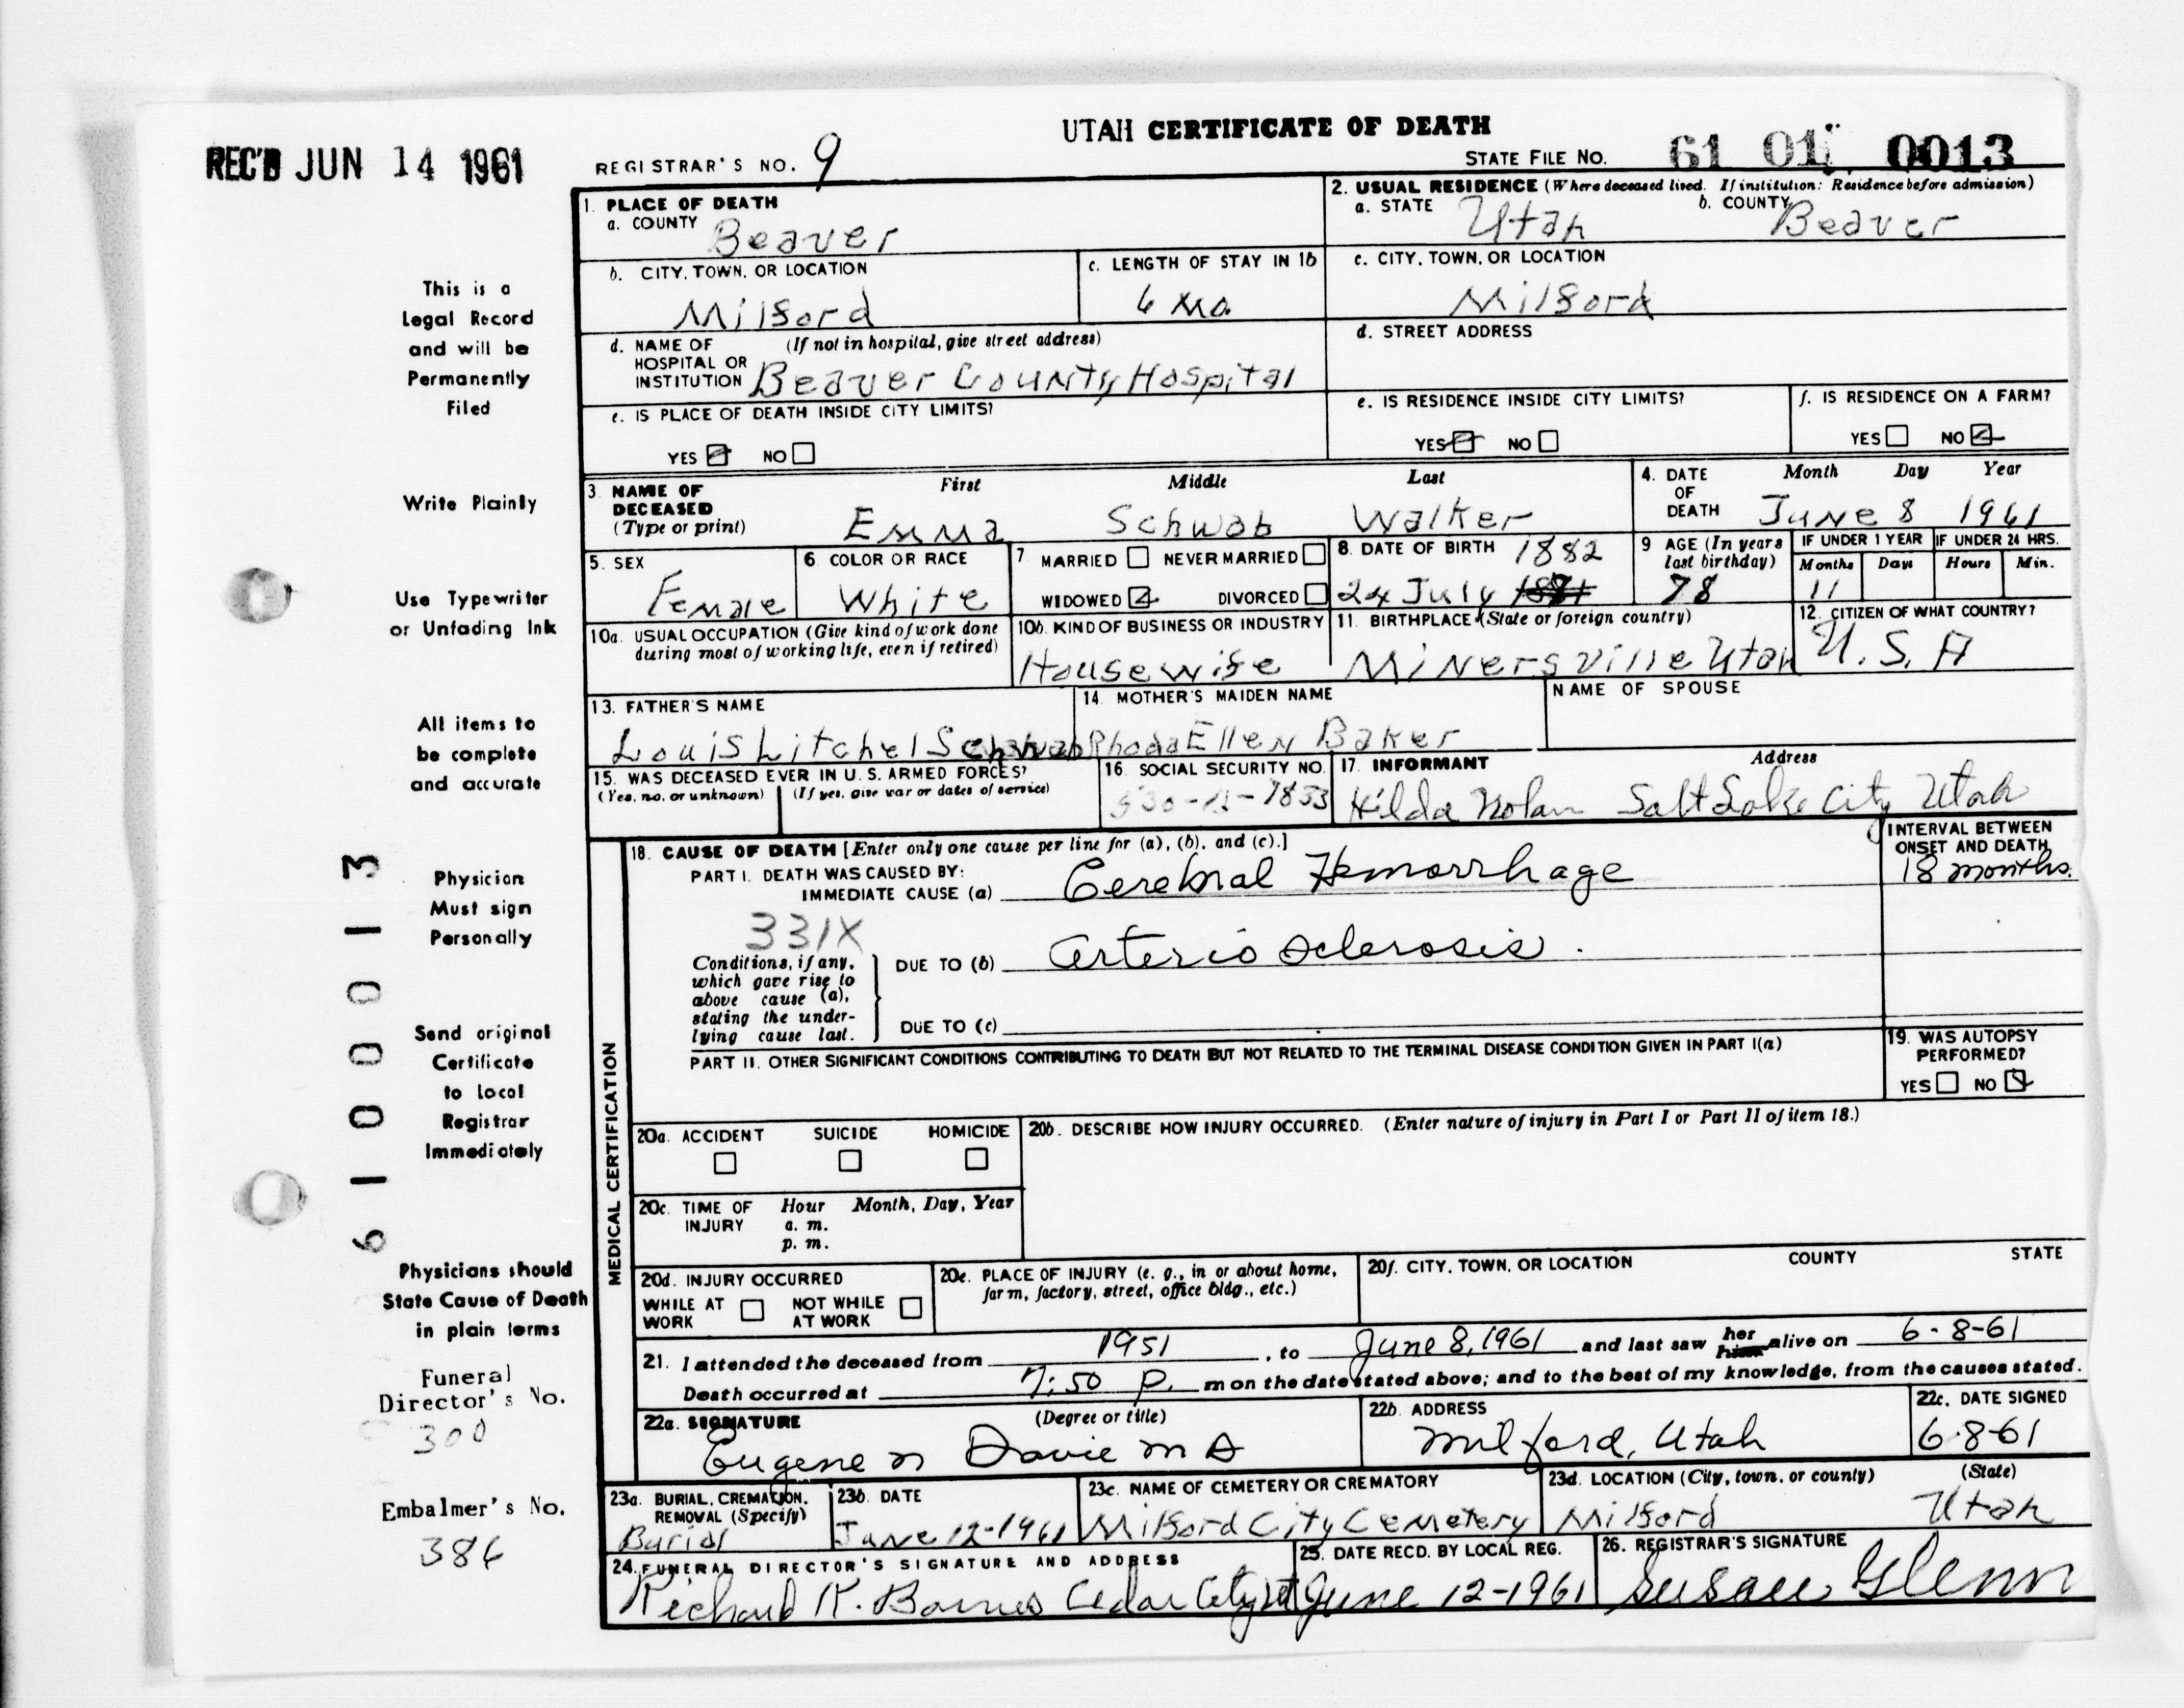 UTAH CERTIFICATE OF DEATH
REC'D JUN 14 1961
REGISTRAR'S NO. 9
STATE FILE NO. 61 01 0013
1. PLACE OF DEATH
a. COUNTY Beaver
2. USUAL RESIDENCE (Where deceased lived. If institution: Residence before admission)
a. STATE Utah b. COUNTY Beaver
b. CITY, TOWN, OR LOCATION Milford
c. LENGTH OF STAY IN 1b 6 Mo.
c. CITY, TOWN, OR LOCATION Milford
d. NAME OF HOSPITAL OR INSTITUTION (If not in hospital, give street address) Beaver County Hospital
d. STREET ADDRESS
e. IS PLACE OF DEATH INSIDE CITY LIMITS?
YES NO
e. IS RESIDENCE INSIDE CITY LIMITS?
YES NO
f. IS RESIDENCE ON A FARM?
YES NO
3. NAME OF DECEASED (Type or print)
First Middle Last
Emma Schwab Walker
4. DATE OF DEATH Month Day Year
June 8 1961
5. SEX Female
6 COLOR OR RACE White
7 MARRIED NEVER MARRIED
WIDOWED DIVORCED
8. DATE OF BIRTH 1882
24 July 1881
9 AGE (In years last birthday) 78
IF UNDER 1 YEAR Months Days 11
IF UNDER 24 HRS. Hours Min.
10a. USUAL OCCUPATION (Give kind of work done during most of working life, even if retired)
10b. KIND OF BUSINESS OR INDUSTRY Housewife
11. BIRTHPLACE (State or foreign country) Minersville Utah
12. CITIZEN OF WHAT COUNTRY? U.S.A
13. FATHER'S NAME Louis Litchel Schwab
14. MOTHER'S MAIDEN NAME Rhoda Ellen Baker
NAME OF SPOUSE
15. WAS DECEASED EVER IN U.S. ARMED FORCES?
(Yes, no, or unknown) (If yes, give war or dates of service)
16. SOCIAL SECURITY NO.
17. INFORMANT Address
Hilda Nolan Salt Lake City Utah
MEDICAL CERTIFICATION
18. CAUSE OF DEATH [Enter only one cause per line for (a), (b), and (c).]
PART I. DEATH WAS CAUSED BY:
IMMEDIATE CAUSE (a) Cerebral Hemorrhage
INTERVAL BETWEEN ONSET AND DEATH
18 months.
331X
Conditions, if any, which gave rise to above cause (a), stating the underlying cause last.
DUE TO (b) Arterio sclerosis.
DUE TO (c)
PART II. OTHER SIGNIFICANT CONDITIONS CONTRIBUTING TO DEATH BUT NOT RELATED TO THE TERMINAL DISEASE CONDITION GIVEN IN PART I(a)
19. WAS AUTOPSY PERFORMED?
YES NO
20a. ACCIDENT SUICIDE HOMICIDE
20b. DESCRIBE HOW INJURY OCCURRED. (Enter nature of injury in Part I or Part II of item 18.)
20c. TIME OF INJURY Hour Month, Day, Year
a. m.
p. m.
20d. INJURY OCCURRED
WHILE AT WORK NOT WHILE AT WORK
20e. PLACE OF INJURY (e. g., in or about home, farm, factory, street, office bldg., etc.)
20f. CITY, TOWN, OR LOCATION COUNTY STATE
21. I attended the deceased from 1951, to June 8, 1961 and last saw her him alive on 6-8-61
Death occurred at 7:50 P. m on the date stated above; and to the best of my knowledge, from the causes stated.
22a. SIGNATURE (Degree or title)
Eugene N Davie M D
22b. ADDRESS Milford, Utah
22c. DATE SIGNED 6-8-61
23a. BURIAL, CREMATION, REMOVAL (Specify) Burial
23b. DATE June 12-1961
23c. NAME OF CEMETERY OR CREMATORY Milford City Cemetery
23d. LOCATION (City, town, or county) (State)
Milford Utah
24. FUNERAL DIRECTOR'S SIGNATURE AND ADDRESS
Richard K. Barnes Cedar City Ut
25. DATE RECD. BY LOCAL REG. June 12-1961
26. REGISTRAR'S SIGNATURE Susau Glenn
This is a
Legal Record
and will be
Permanently
Filed
Write Plainly
Use Typewriter
or Unfading Ink
All items to
be complete
and accurate
Physician
Must sign
Personally
Send original
Certificate
to local
Registrar
Immediately
Physicians should
State Cause of Death
in plain terms
Funeral
Director's No.
300
Embalmer's No.
386
61010013